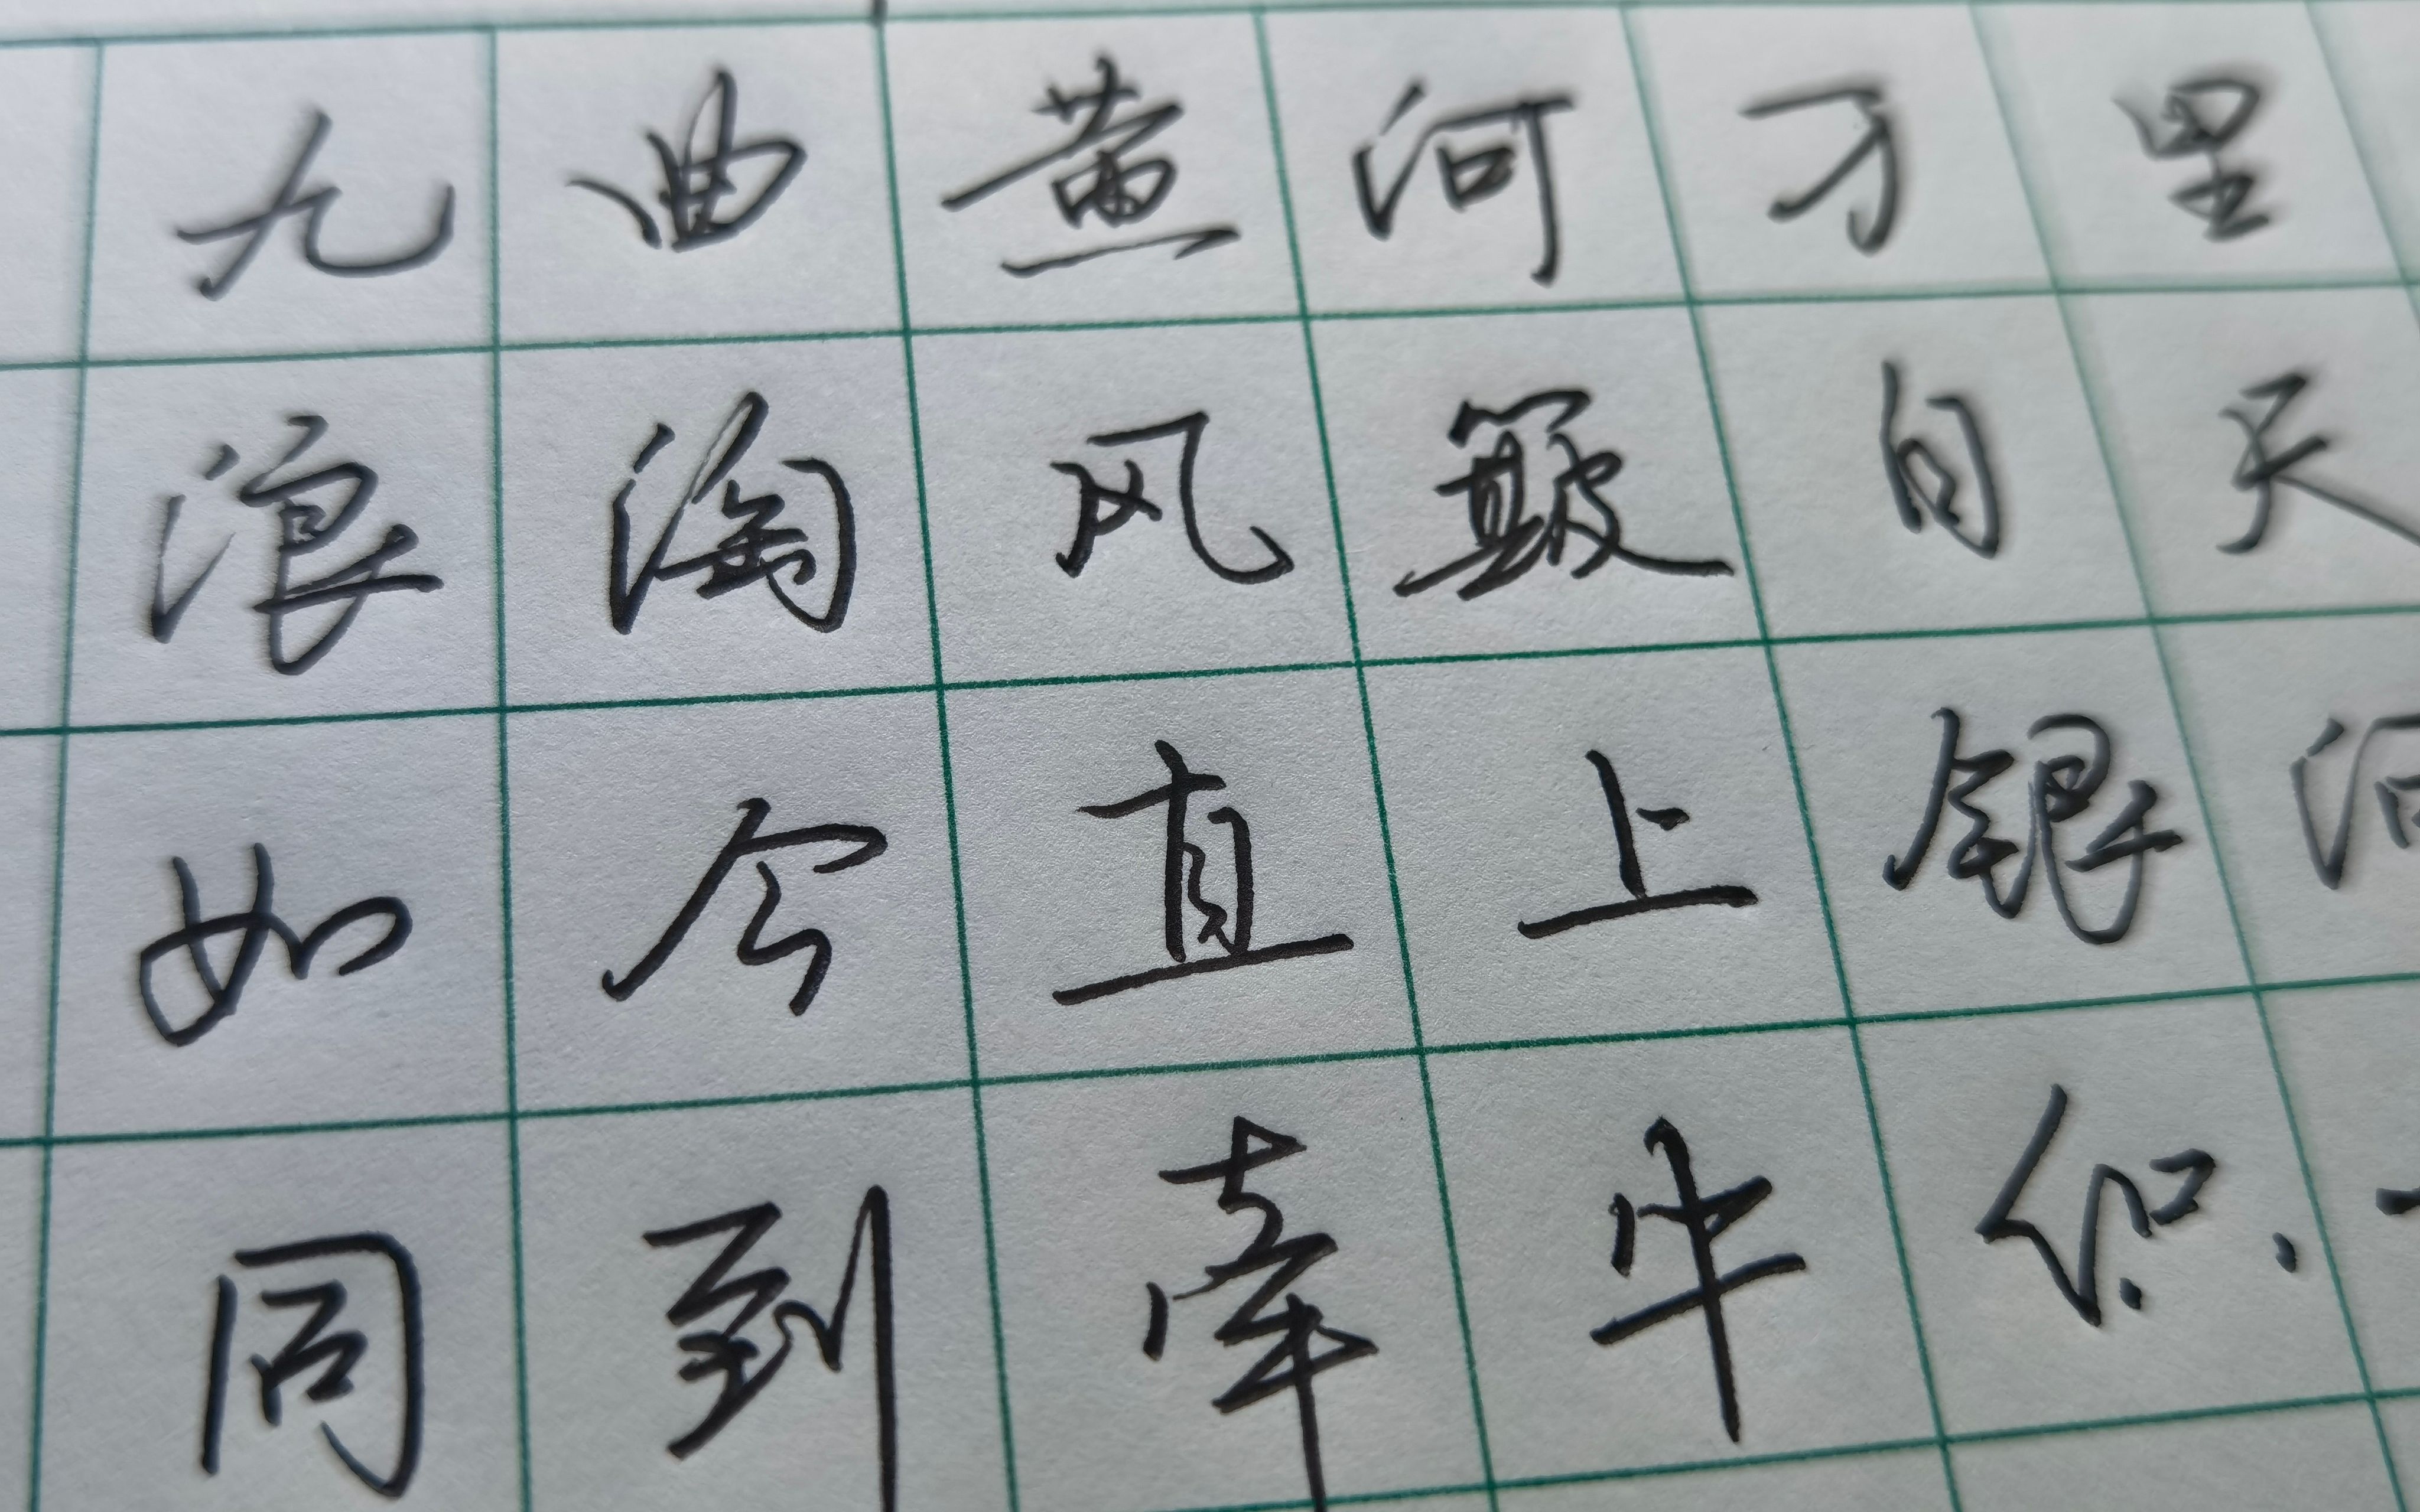 九曲黄河万里
浪淘风簸自天
如今直上银河
同到牵牛织